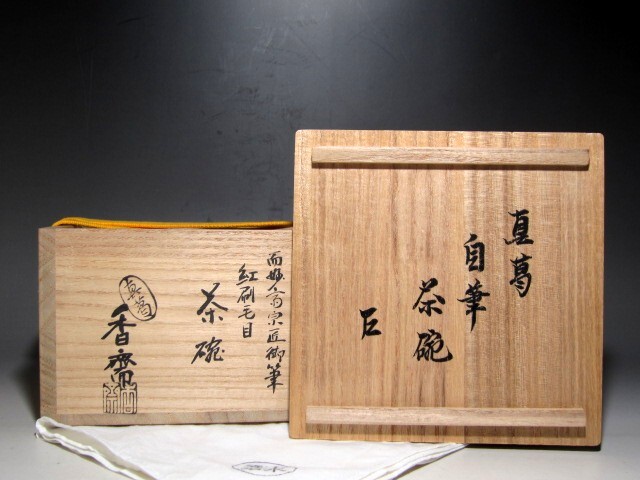 真葛
自筆
茶碗
而妙斎宗匠御筆
紅刷毛目
茶碗
真葛
香齋